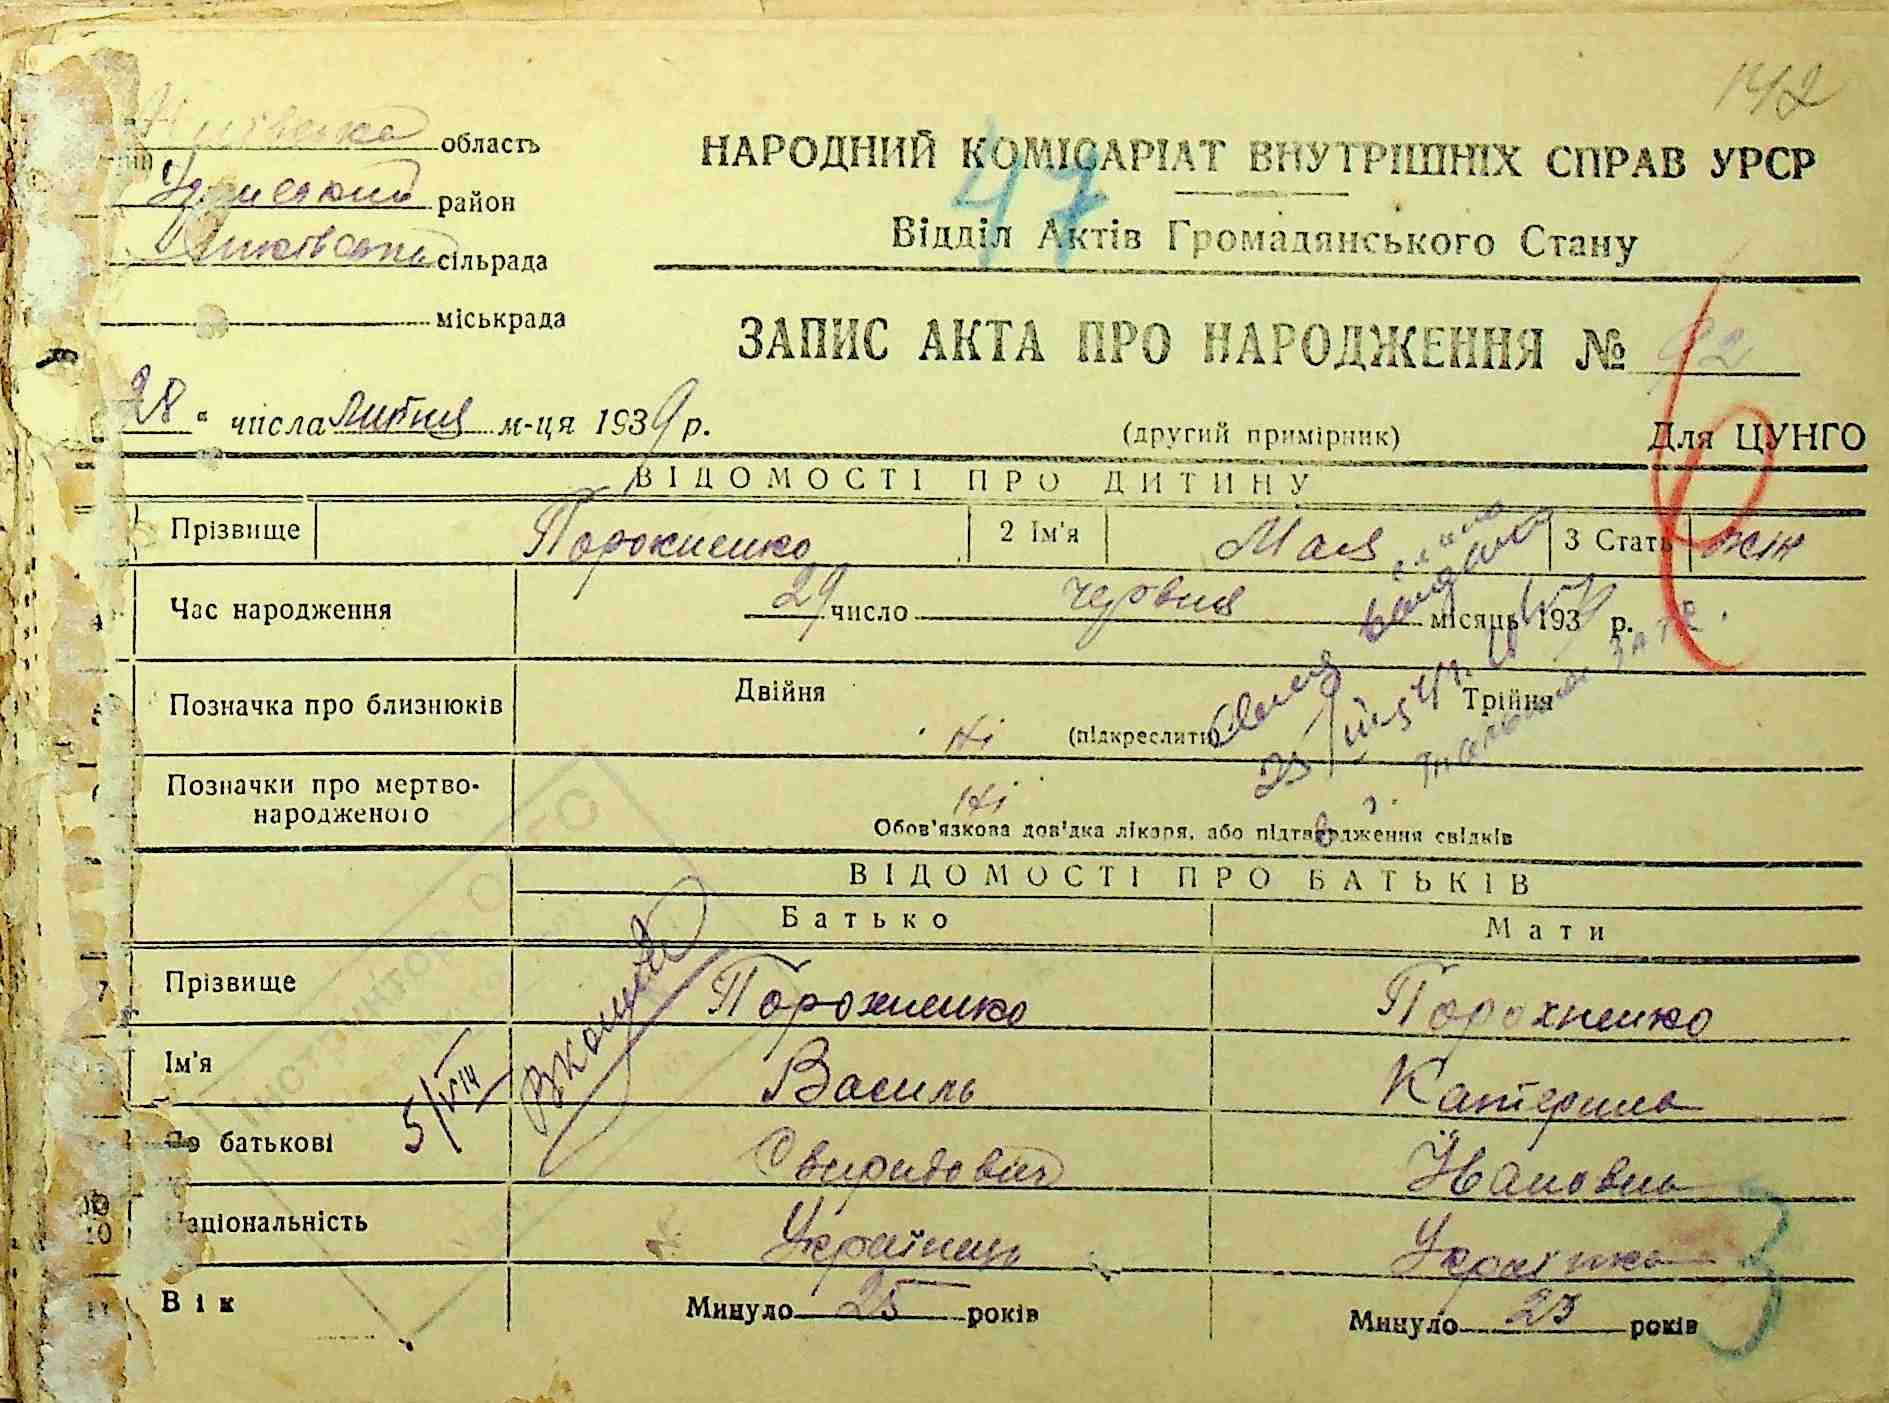 142
область
район
сільрада
міськрада
НАРОДНИЙ КОМІСАРІАТ ВНУТРІШНІХ СПРАВ УРСР
47
Відділ Актів Громадянського Стану
ЗАПИС АКТА ПРО НАРОДЖЕННЯ № 92
28 " числа липня м-ця 1939 р.
(другий примірник)
Для ЦУНГО
ВІДОМОСТІ ПРО ДИТИНУ
Прізвище Порохненко 2 Ім'я Мая 3 Стать жін
Час народження 29 число червня місяць 193 р.
Позначка про близнюків Двійня Трійня
ні (підкреслити)
Позначки про мертво-
народженого ні
Обов'язкова довідка лікаря, або підтвердження свідків
ВІДОМОСТІ ПРО БАТЬКІВ
Батько Мати
7 Прізвище Порохненко Порохненко
Ім'я Василь Катерина
По батькові Свиридович Івановна
10 Національність Українець Українка
11 Вік Минуло 25 років Минуло 23 років
5/VIII
3